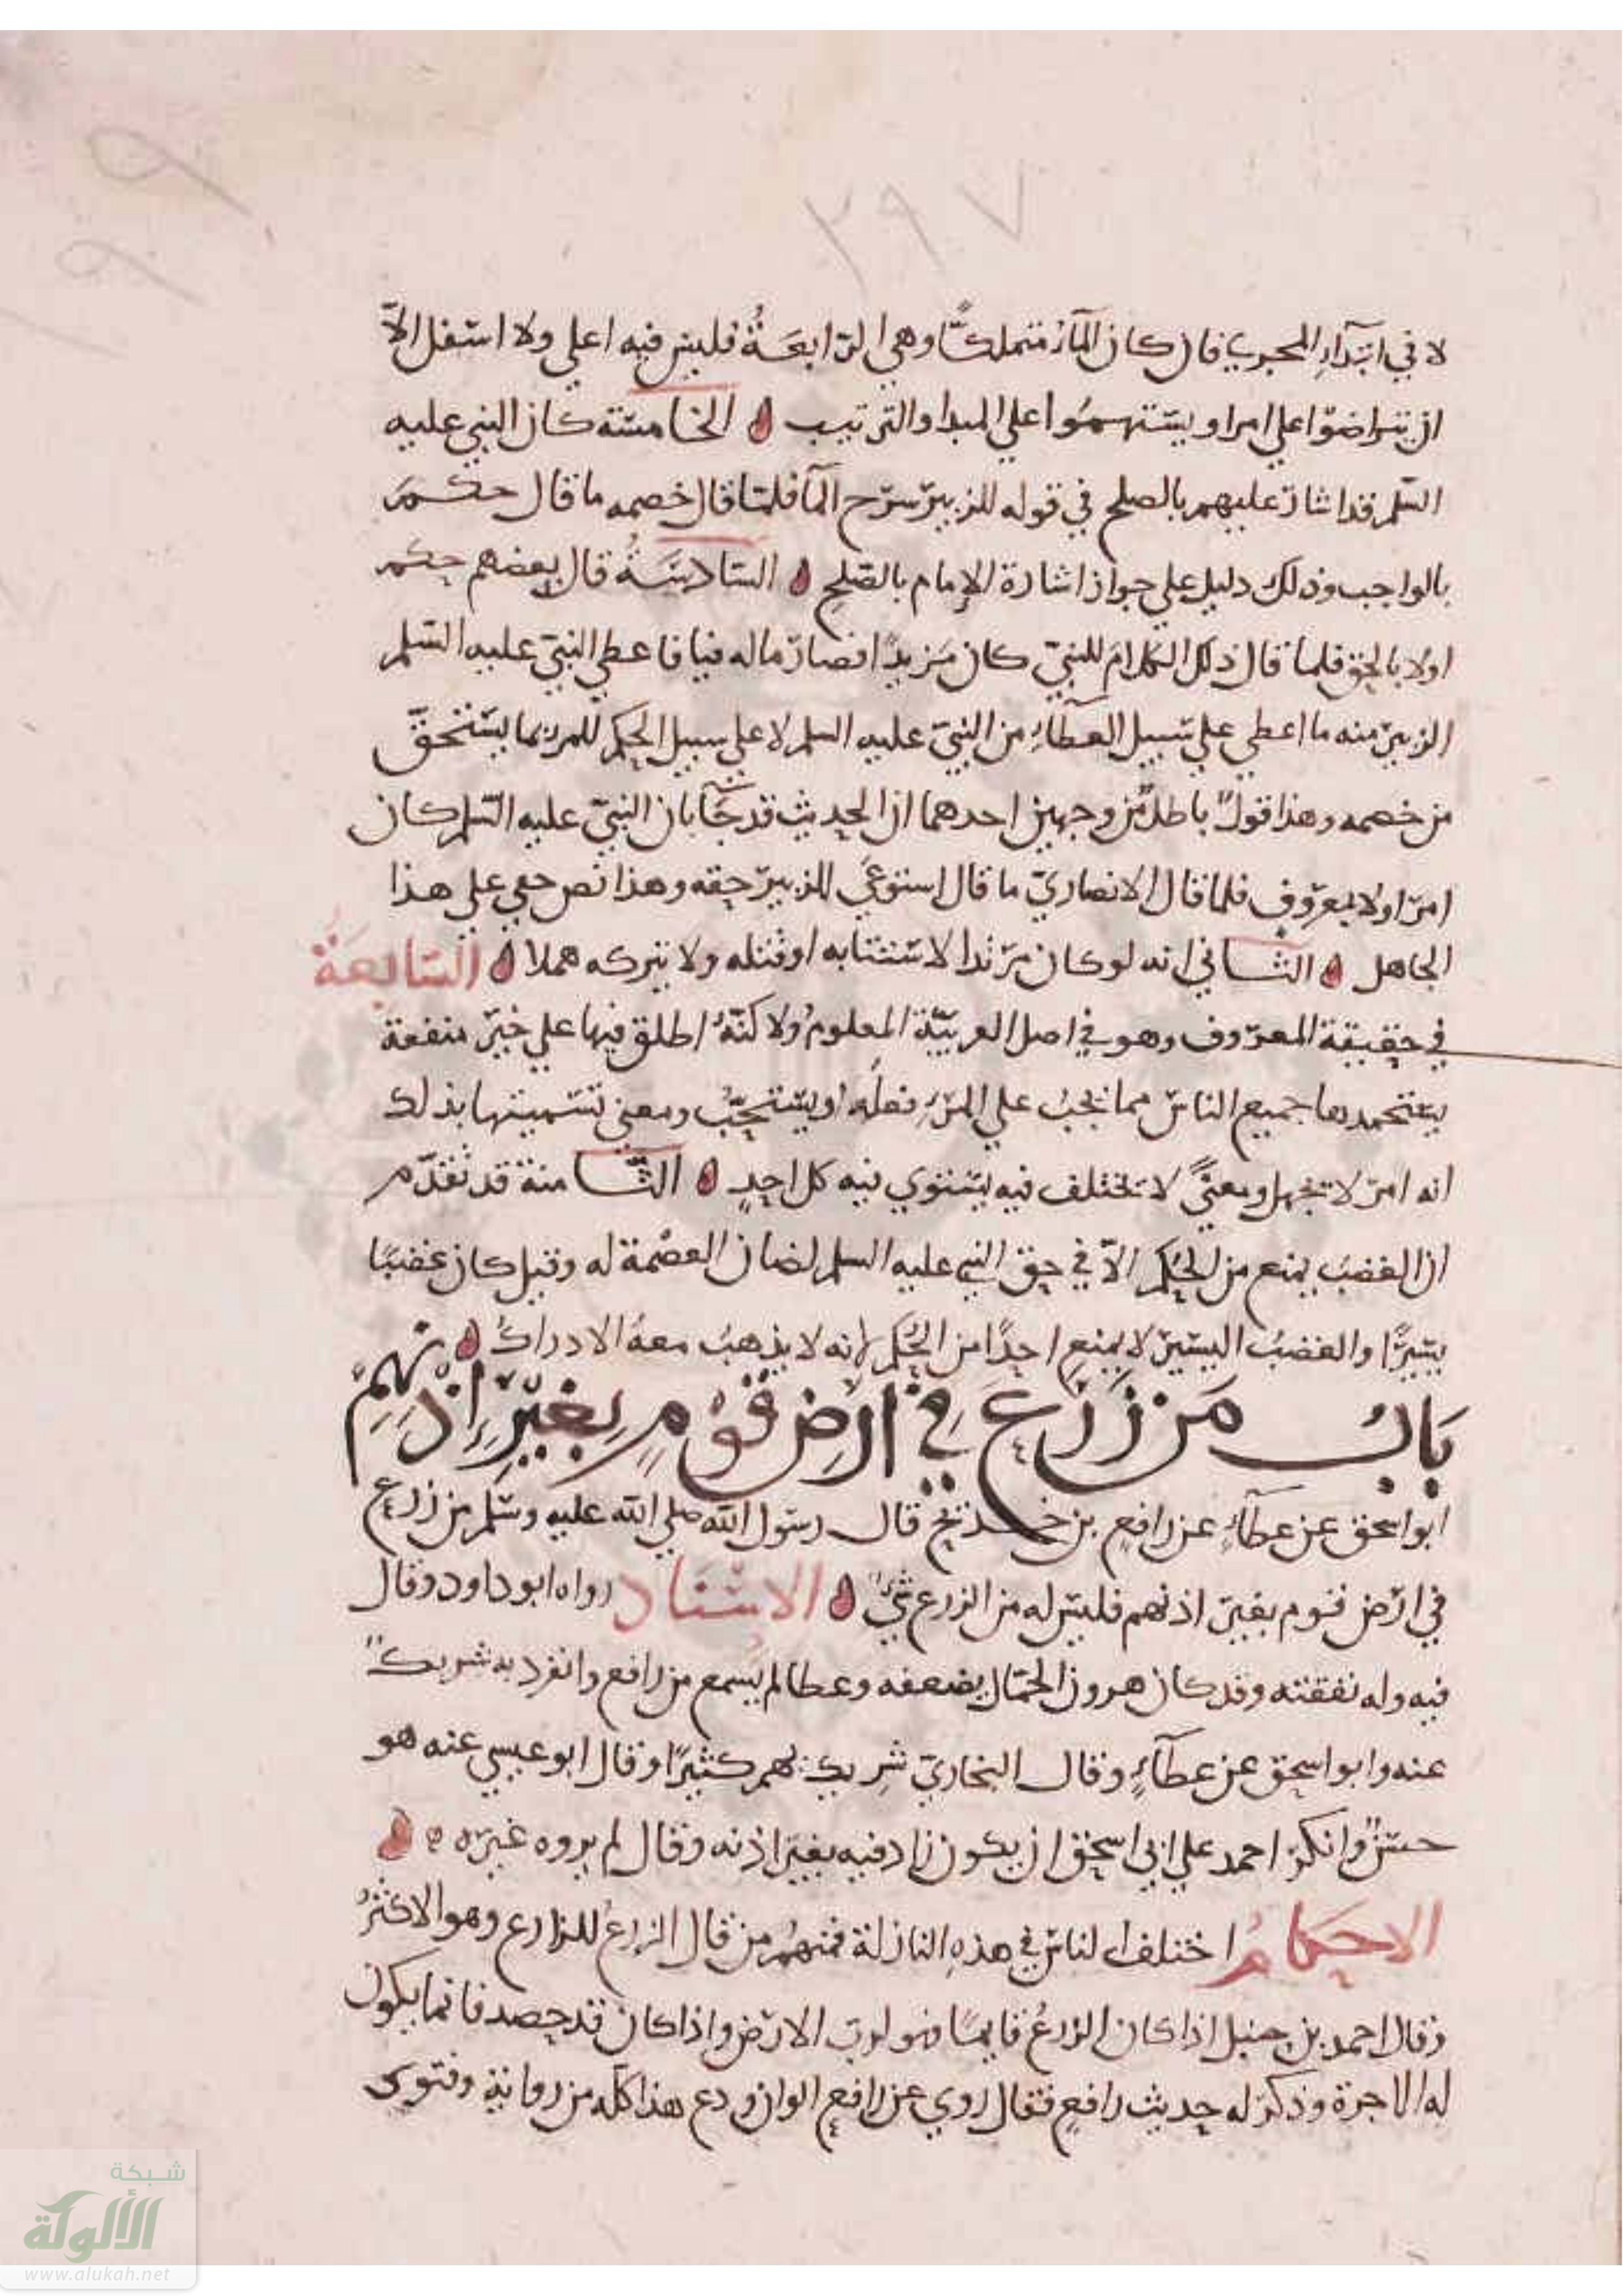 ٢٩٧
٩
٩
لا في ابتدآءِ المجري فان كان المآء متملكًا وهي الرّابعَةُ فليس فيه اعلي ولا اسفل الاّ
ان يتراضوا علي امر او يستهموا علي المبدا والترتيب الخامسة كان النبي عليه
السّلم قد اشار عليهم بالصلح في قوله للزبير سرّح المآ فلما قال خصمه ما قال حكم
بالواجب وذلك دليل علي جواز اشارة الإمام بالصّلح السّادسَةُ قال بعضهم حكم
اولا بالحق فلما قال ذلك الكلام للنبيّ كان مرتدًا فصار ماله فيا فاعطي النبيّ عليه السّلم
الزبير منه ما اعطي علي سبيل العطآءِ من النبيّ عليه السلم لا علي سبيل الحكم للمرء بما يستحقّ
من خصمه وهذا قولٌ باطلٌ من وجهين احدهما ان الحديث قد جآ بان النبيّ عليه السّلم كان
امر اولا بمعروف فلما قال الانصاريّ ما قال استوعَي للزبير حقه وهذا نص خفي علي هذا
الجاهل الثاني انه لو كان مرتدا لاستتابه او قتله ولا يتركه هملا السّابعَةُ
في حقيقة المعروف وهو في اصل العربيّة المعلومُ ولاكنّهُ اطلق فيها علي خير منفعة
يستحمد بها جميع الناس مما يجبُ علي المرءِ فعلُه او يستحبُّ ومعني تسميتها بذلك
انه امر لا يجهل ومعنًي لا يختلف فيه يستوي فيه كل احدٍ الثّامنة قد تقدّم
ان الغضبَ يمنع من الحُكم الاّ في حق النبي عليه السلم لضمان العصْمة له وقيل كان غضبًا
يسيرًا والغضبُ اليسير لا يمنع احدًا من الحُكم لانه لا يذهبُ معهُ الادراكُ
بَابُ مَن زَرَعَ فِي ارْضِ قَوْمٍ بِغَيْرِ اِذْنِهِمْ
ابو اسحق عن عطآءٍ عن رافعِ بن خديج قال رسول الله صلي الله عليه وسلم من زرع
في ارض قوم بغير اذنهم فليس له من الزرع شيءٌ الاسْنَاد رواه ابو داود وقال
فيه وله نفقته وقد كان هرون الحمّال يضعفه وعطا لم يسمع من رافع وانفرد به شريكٌ
عنه وابو اسحق عن عطآءٍ وقال البخاريّ شريك يهم كثيرًا وقال ابو عيسي عنه هو
حسنٌ وانكر احمد علي ابي اسحق ان يكون زاد فيه بغير اذنه وقال لم يروه غيره
الاحكَامُ اختلف الناس في هذهِ النازلة فمنهُم من قال الزرعُ للزارع وهو الاكثرُ
وقال احمد بن حنبل اذا كان الزرعُ قايمًا فهو لرب الارض واذا كان قد حصد فانما يكون
له الاجرة وذكر له حديث رافع فقال روي عن رافع الوان ودع هذا كله من رواية وفتوى
شبكة
الألوكة
www.alukah.net